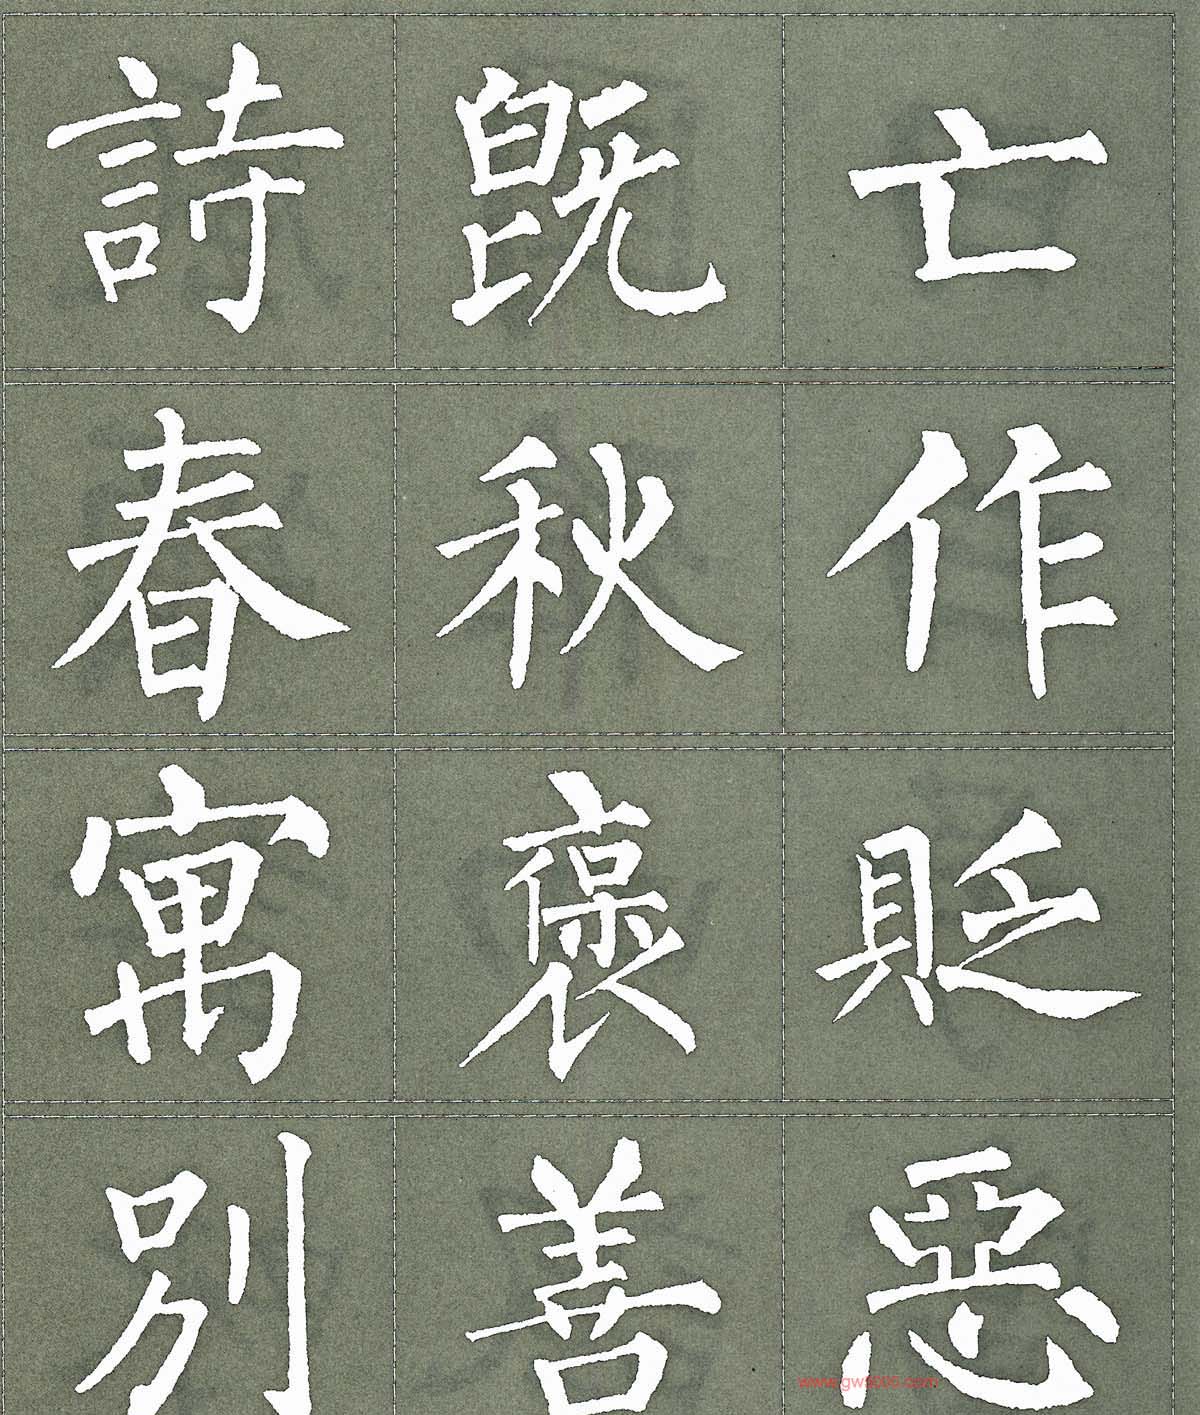 詩既亡
春秋作
寓褒貶
別善惡